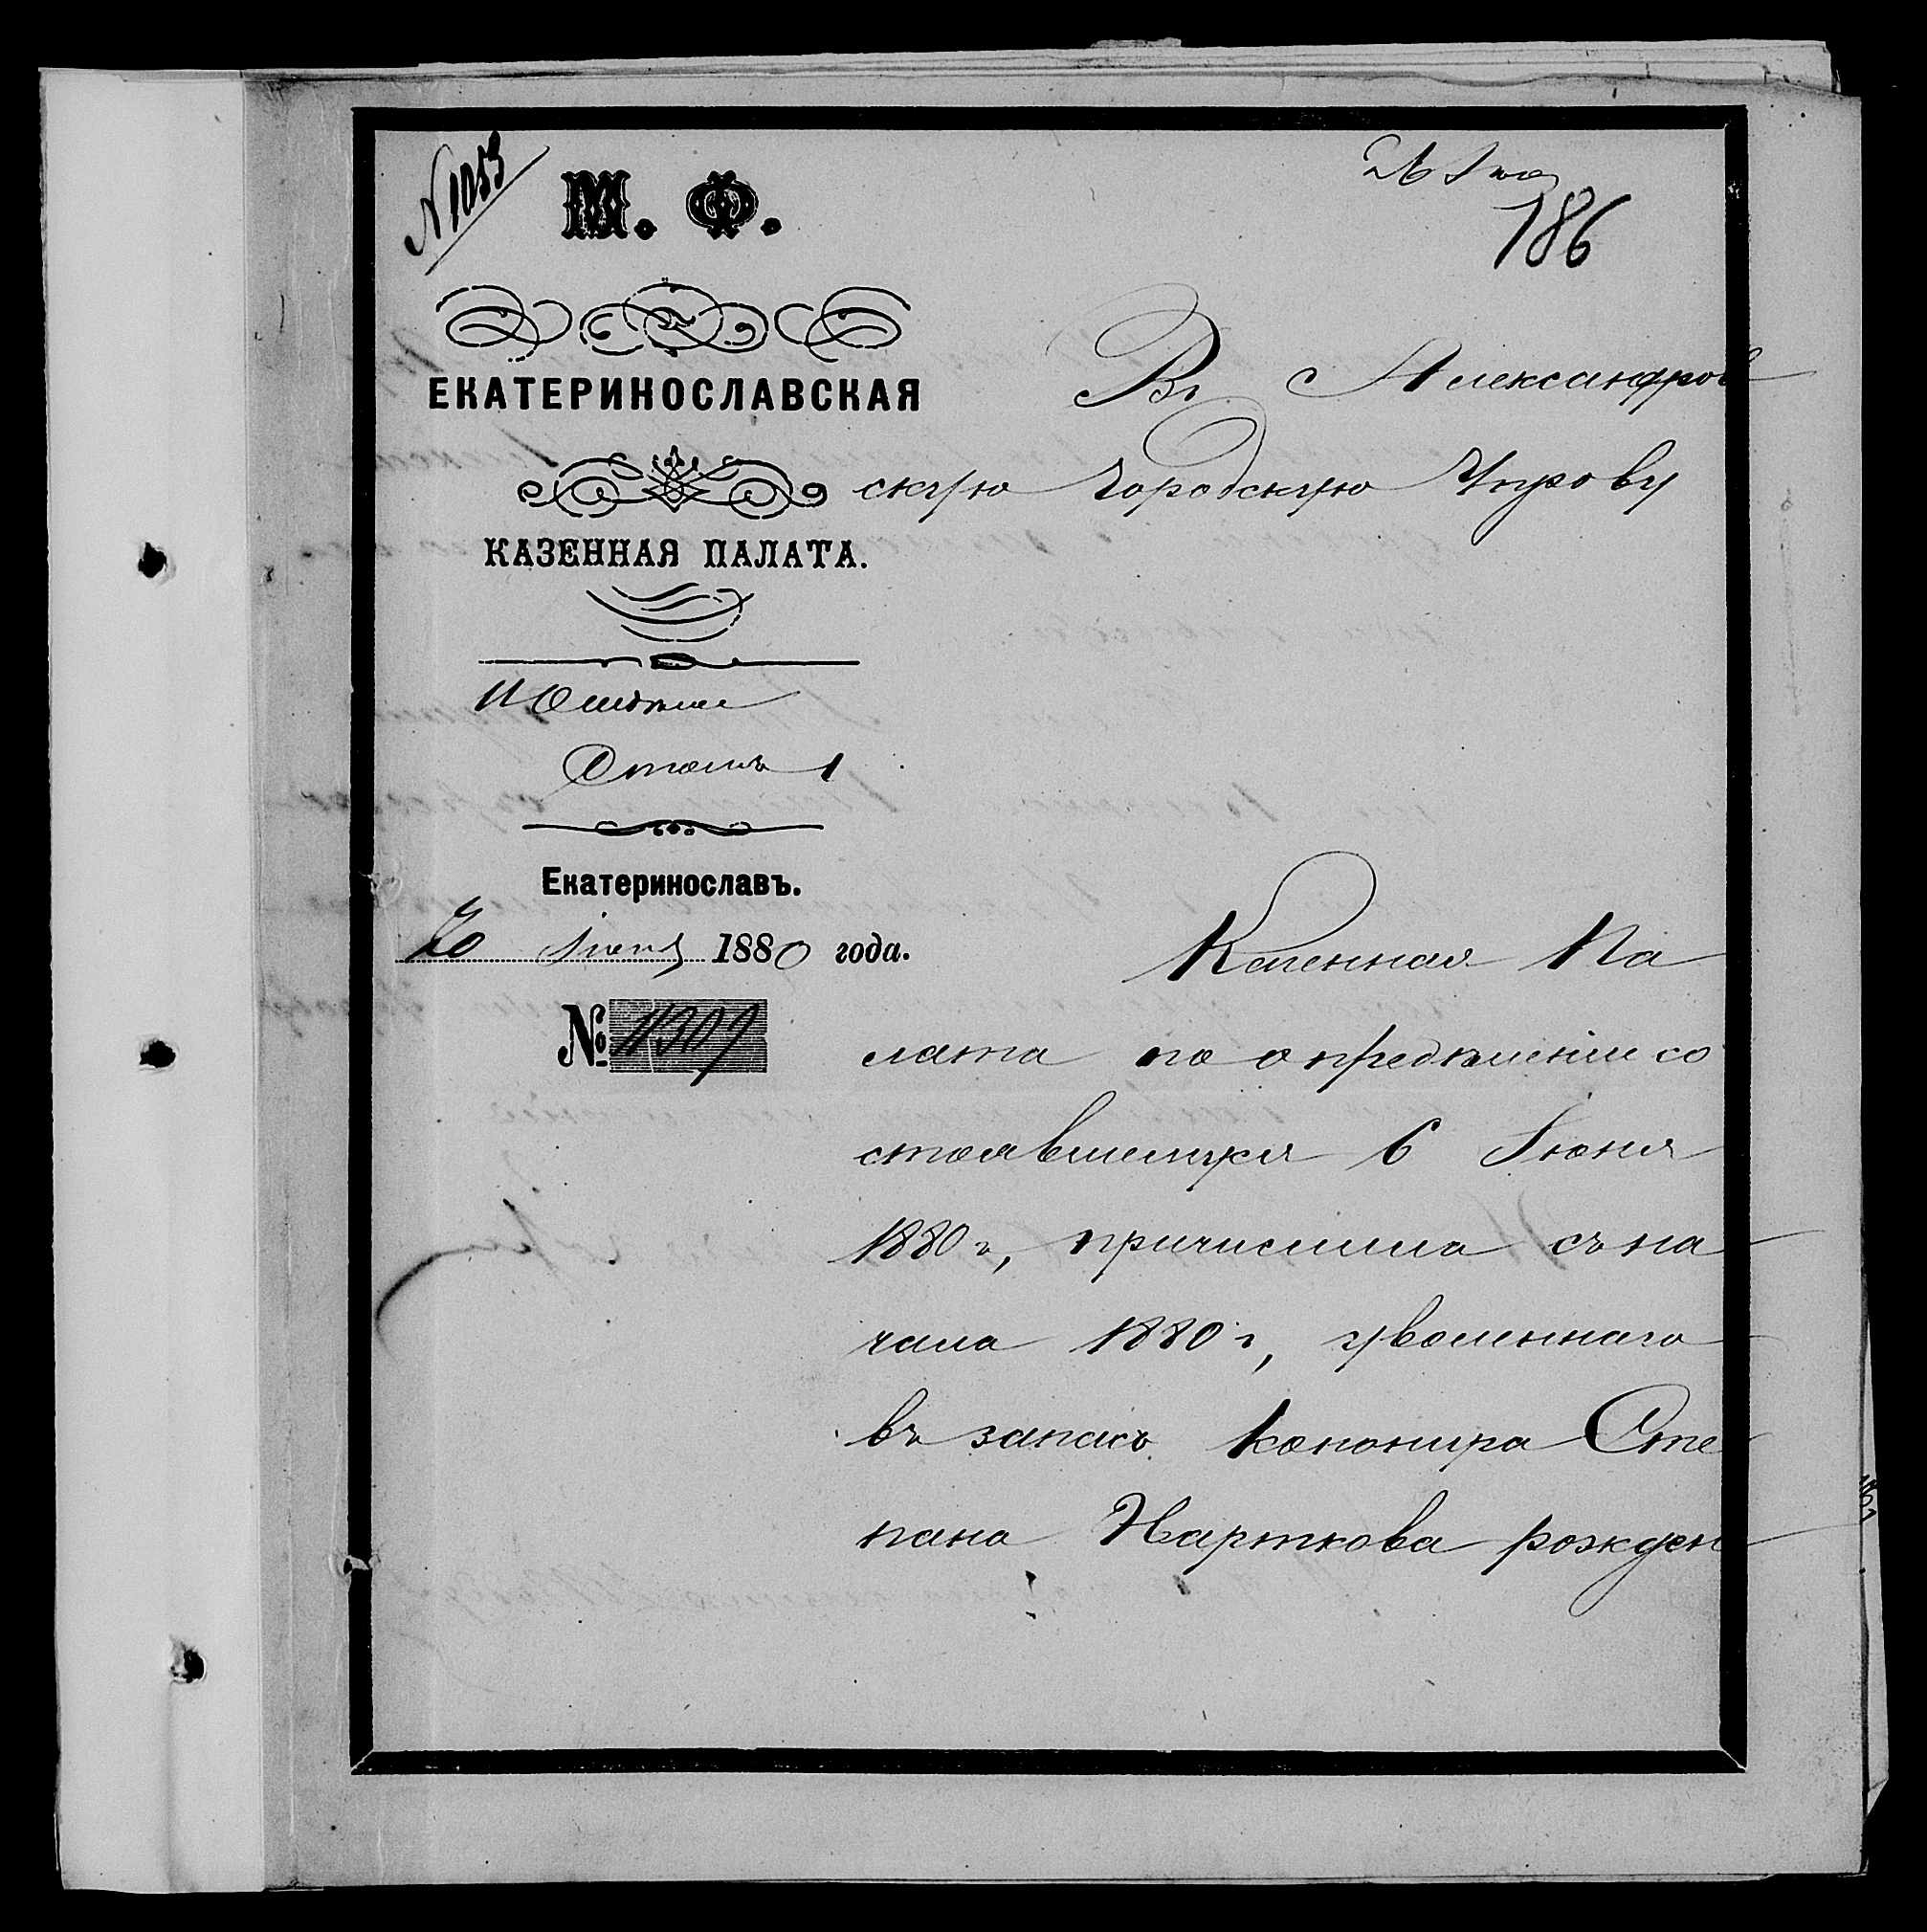 N 1053
26 Іюня
186
М. Ф.
ЕКАТЕРИНОСЛАВСКАЯ
КАЗЕННАЯ ПАЛАТА.
Отдѣленіе
Столъ 1
Екатеринославъ.
20 Іюня 1880 года.
№ 11309
Въ Александров
скую Городскую Управу
Казенная Па
лата по опредѣленію со
стоявшемуся 6 Іюня
1880 г, причислила съ на
чала 1880 г, уволеннаго
въ запасъ Канонира Сте
пана Нарткова рожден